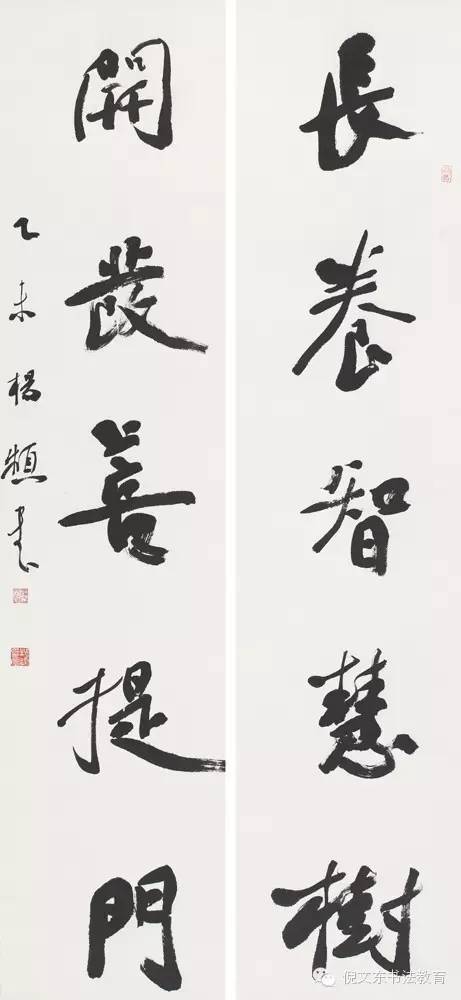 長養智慧樹
開發菩提門
乙未楊頻書
倪文东书法教育